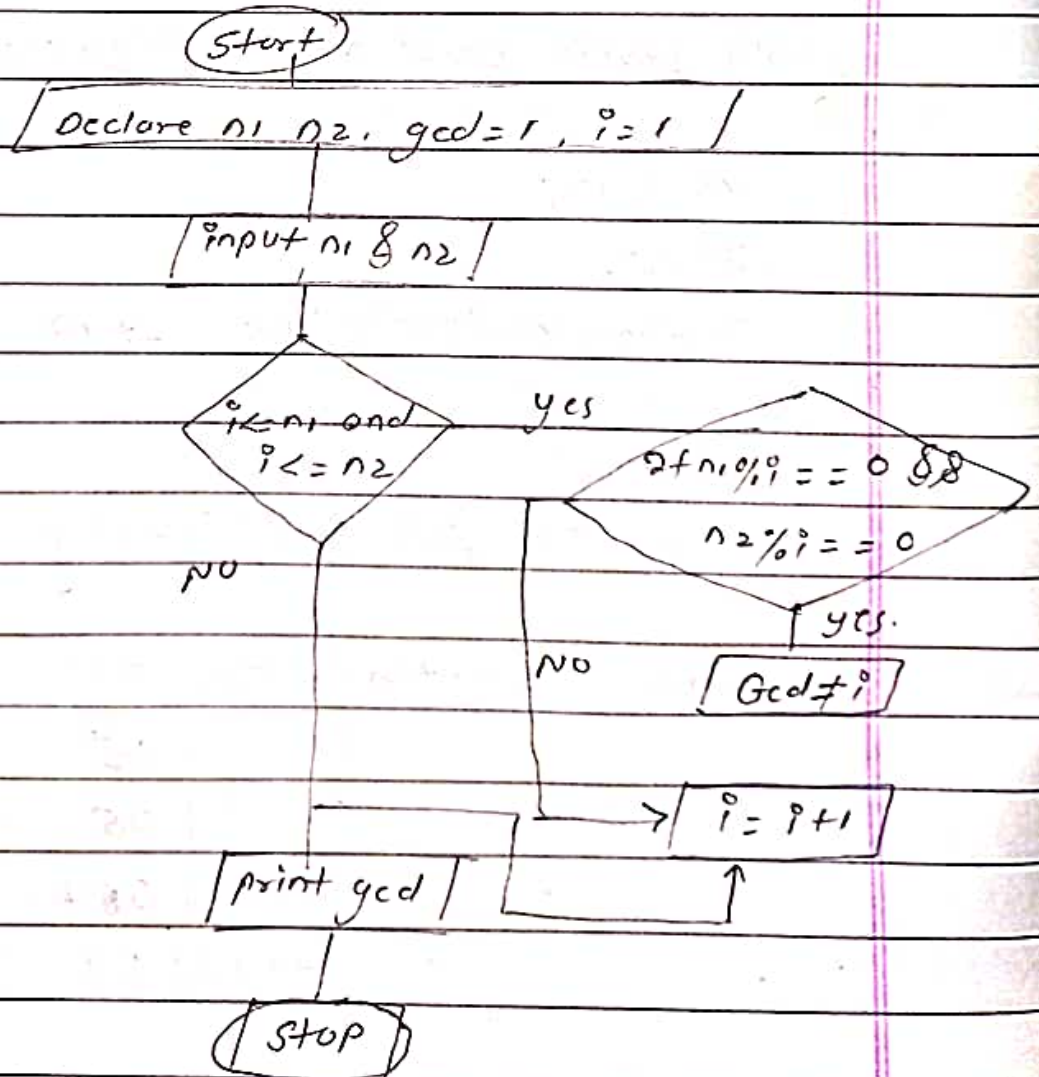 Start
Declare n1 n2, gcd=1, i=1
input n1 & n2
i<=n1 and
i<=n2
yes
If n1%i==0 &&
n2%i==0
NO
yes.
NO
Gcd≠i
i=i+1
print gcd
Stop